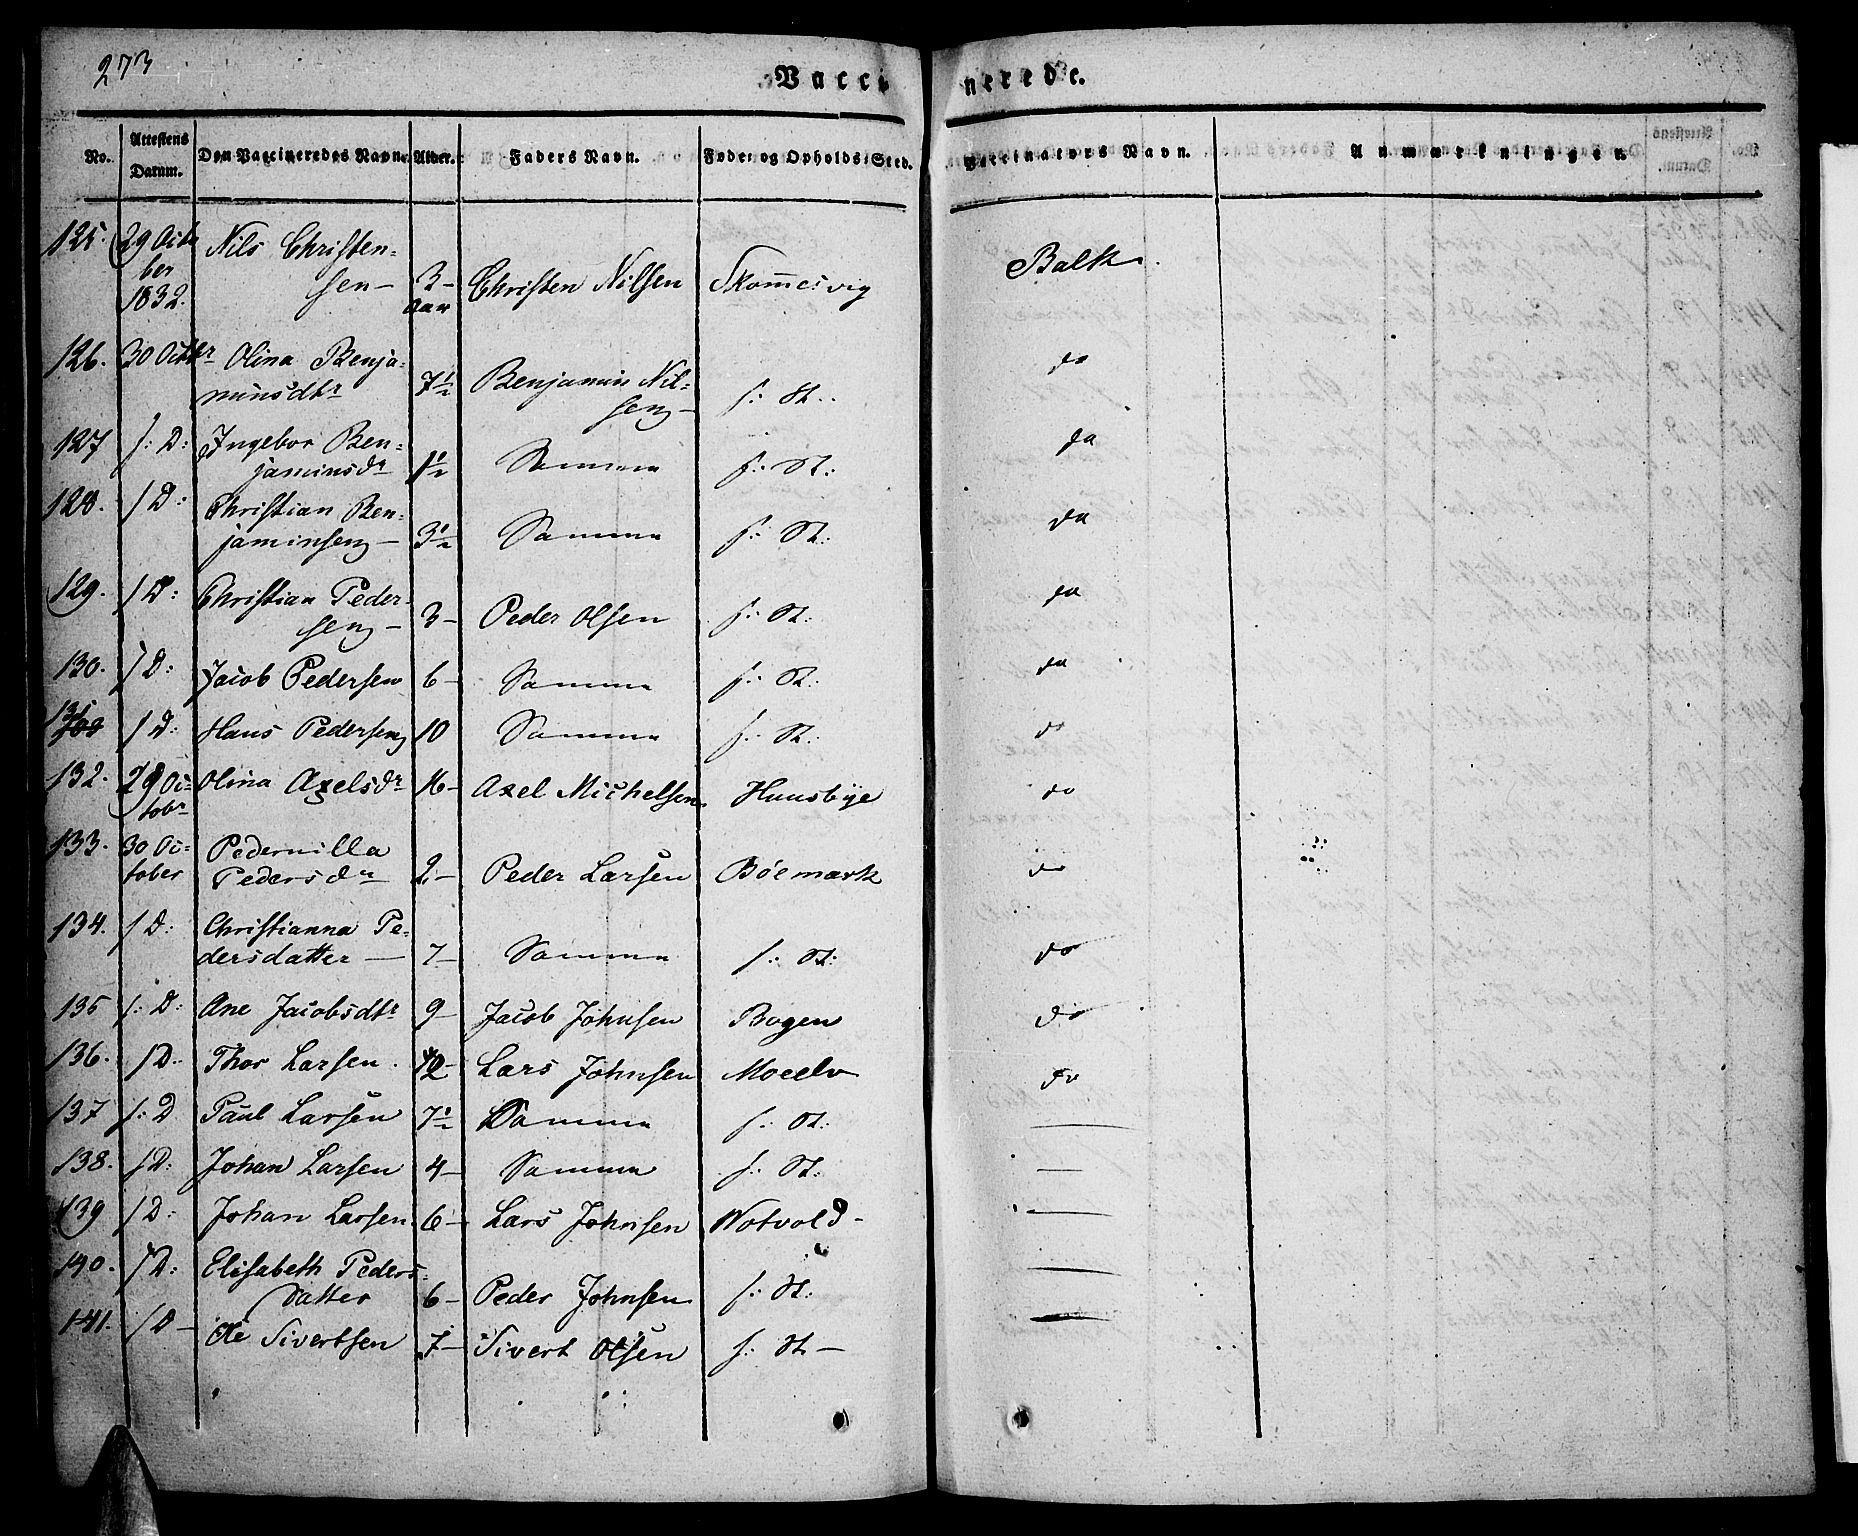 273
Vaccinerede.
No. Attestens Datum. Den Vaccineredes Navn. Alder. Faders Navn. Føde- og Opholds-Sted. Vaccinators Navn. Anmærkninger.
125. 29 Octo
ber
1832. Nils Christen-
sen 3 Aar Christen Nilsen Skomesvig Balk.
126. 30 Octbr Olina Benja-
minsdtr 7½ Benjamin Nil-
sen s: St. do
127 s: D: Ingebor Ben-
jaminsdr 1½ Samme s: St: do
128. s D: Christian Ben-
jaminsen 3½ Samme s: St: do
129. s D: Christian Peder-
sen 3 Peder Olsen s: St: do
130. s D: Jacob Pedersen 6 Samme s: St: do
131 s D: Hans Pedersen 10 Samme s: St: do
132. 29 Oc-
tobr Olina Axelsdr 16 Axel Michelsen Huusbye do
133. 30 Oc-
tober Pedernilla
Pedersdr 2 Peder Larsen Bøemark do
134. s D: Christianna Pe-
dersdatter 7 Samme s: St: do
135 s: D: Ane Jacobsdtr 9 Jacob Johnsen Bogen do
136. s D: Thor Larsen 12 Lars Johnsen Moeelv do
137 s: D Paul Larsen 7½ Samme s: St: —
138. s D: Johan Larsen 4 Samme s: St: —
139 s D: Johan Larsen 6 Lars Johnsen Notvold —
140. s D: Elisabeth Peders-
datter 6 Peder Johnsen s: St: —
141. s D Ole Sivertsen 7 Sivert Olsen s: St —